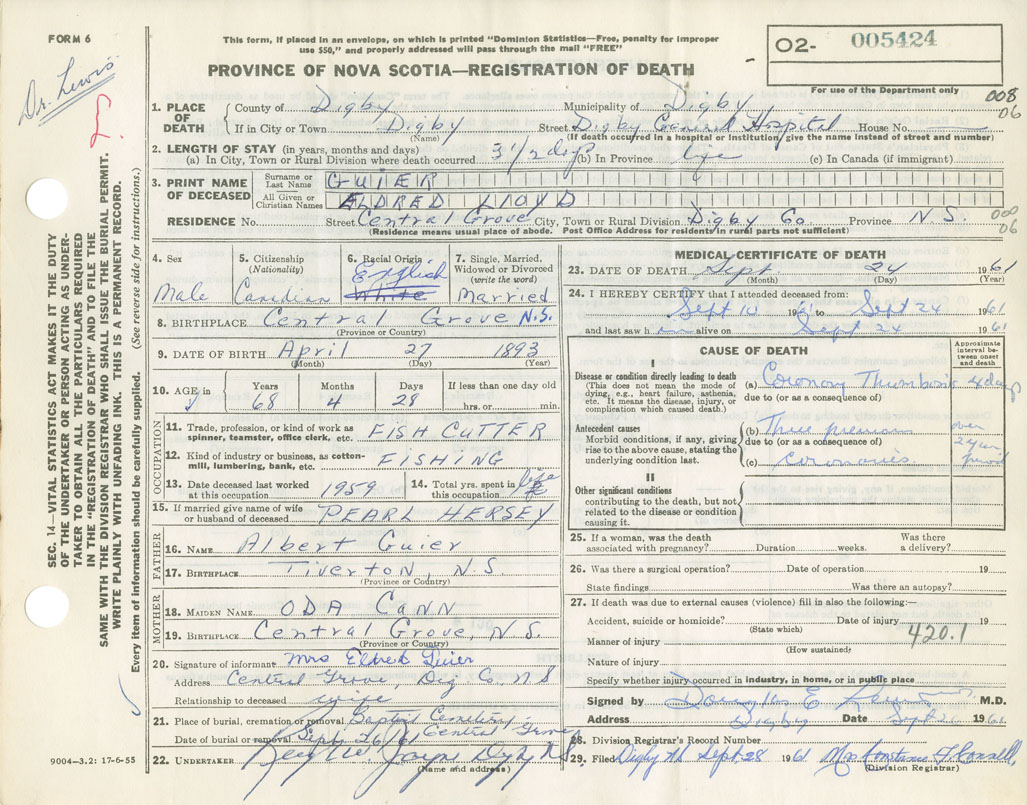 FORM 6
This form, if placed in an envelops, on which is printed "Dominion Statistics—Free, penalty for improper
use $50," and properly addressed will pass through the mail "FREE"
PROVINCE OF NOVA SCOTIA—REGISTRATION OF DEATH
O2- 005424
For use of the Department only
008
06
Dr. Lewis
SEC. 14—VITAL STATISTICS ACT MAKES IT THE DUTY
OF THE UNDERTAKER OR PERSON ACTING AS UNDER-
TAKER TO OBTAIN ALL THE PARTICULARS REQUIRED
IN THE "REGISTRATION OF DEATH" AND TO FILE THE
SAME WITH THE DIVISION REGISTRAR WHO SHALL ISSUE THE BURIAL PERMIT.
WRITE PLAINLY WITH UNFADING INK. THIS IS A PERMANENT RECORD.
Every item of information should be carefully supplied. (See reverse side for instructions.)
1. PLACE OF DEATH County of Digby Municipality of Digby
If in City or Town Digby Street Digby General Hospital House No.
(Name) (If death occurred in a hospital or institution, give the name instead of street and number)
2. LENGTH OF STAY (in years, months and days)
(a) In City, Town or Rural Division where death occurred 3 1/2 days (b) In Province life (c) In Canada (if immigrant)
3. PRINT NAME OF DECEASED Surname or Last Name GUIER
All Given or Christian Names ELDRED LLOYD
RESIDENCE No. Street Central Grove City, Town or Rural Division Digby Co. Province N.S.
000
06
(Residence means usual place of abode. Post Office Address for residents in rural parts not sufficient)
4. Sex Male
5. Citizenship (Nationality) Canadian
6. Racial Origin English White
7. Single, Married, Widowed or Divorced (write the word) Married
8. BIRTHPLACE Central Grove N.S.
(Province or Country)
9. DATE OF BIRTH April 27 1893
(Month) (Day) (Year)
10. AGE in Years 68 Months 4 Days 28 If less than one day old hrs. or min.
OCCUPATION
11. Trade, profession, or kind of work as spinner, teamster, office clerk, etc. FISH CUTTER
12. Kind of industry or business, as cotton-mill, lumbering, bank, etc. FISHING
13. Date deceased last worked at this occupation 1959 14. Total yrs. spent in this occupation life
15. If married give name of wife or husband of deceased PEARL HERSEY
FATHER
16. NAME Albert Guier
17. BIRTHPLACE Tiverton, N.S.
(Province or Country)
MOTHER
18. MAIDEN NAME ODA Cann
19. BIRTHPLACE Central Grove, N.S.
(Province or Country)
20. Signature of informant Mrs Eldred Guier
Address Central Grove, Dig Co. N S
Relationship to deceased wife
21. Place of burial, cremation or removal Baptist Cemetery
Date of burial or removal Sept. 26/61 Central Grove
22. UNDERTAKER
(Name and address)
9004—3.2: 17-6-55
MEDICAL CERTIFICATE OF DEATH
23. DATE OF DEATH Sept. 24 1961
(Month) (Day) (Year)
24. I HEREBY CERTIFY that I attended deceased from:
Sept 1961 to Sept 24 1961
and last saw h alive on Sept 24 1961
CAUSE OF DEATH
Approximate interval between onset and death
I
Disease or condition directly leading to death
(This does not mean the mode of dying, e.g., heart failure, asthenia, etc. It means the disease, injury, or complication which caused death.)
(a) Coronary Thrombosis 4 days
due to (or as a consequence of)
Antecedent causes
Morbid conditions, if any, giving rise to the above cause, stating the underlying condition last.
(b) Three previous over
due to (or as a consequence of) 2 year
(c) coronaries period
II
Other significant conditions
contributing to the death, but not related to the disease or condition causing it.
25. If a woman, was the death associated with pregnancy? Duration weeks. Was there a delivery?
26. Was there a surgical operation? Date of operation 19
State findings Was there an autopsy?
27. If death was due to external causes (violence) fill in also the following:—
Accident, suicide or homicide? Date of injury 19
(State which)
420.1
Manner of injury
(How sustained)
Nature of injury
Specify whether injury occurred in industry, in home, or in public place
Signed by Douglas E Lewis M.D.
Address Digby Date Sept 26 1961
28. Division Registrar's Record Number
29. Filed Digby NS Sept 28 1961 Mrs Constance H Connell
(Division Registrar)